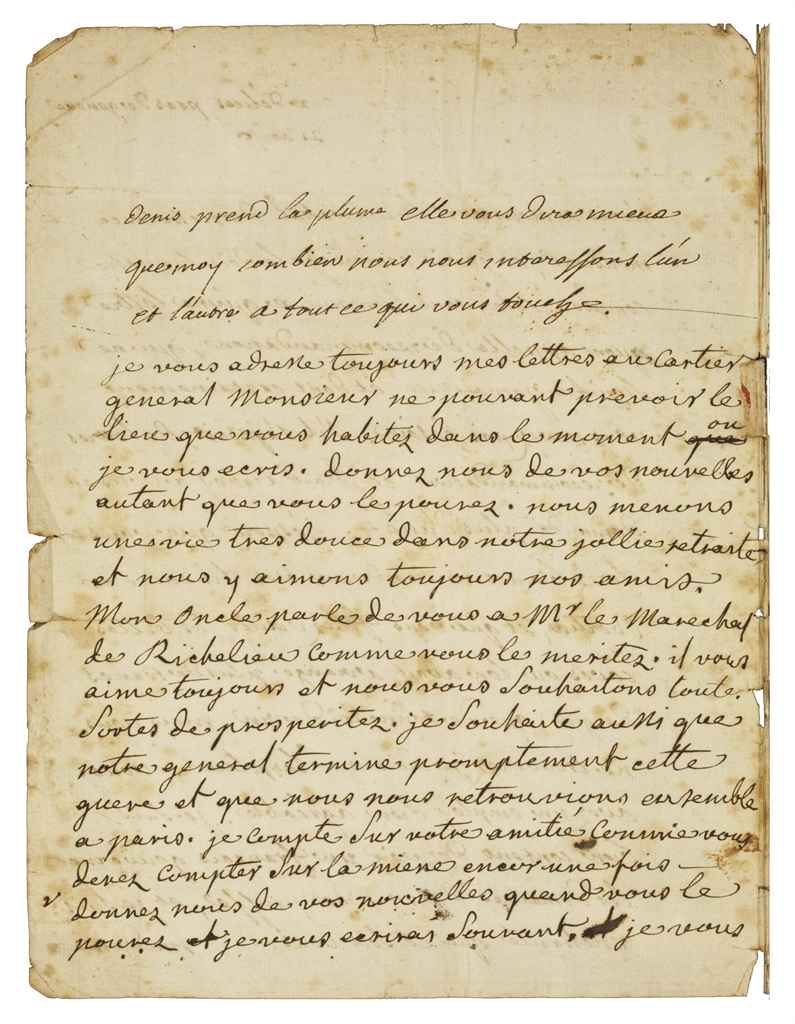 denis prend la plume elle vous dira mieux
que moy combien nous nous interessons l'un
et l'autre a tout ce qui vous touche.
je vous adresse toujours mes lettres au Cartier
general Monsieur ne pouvant prevoir le
lieu que vous habitez dans le moment que ou
je vous ecris. donnez nous de vos nouvelles
autant que vous le pourez. nous menons
une vie tres douce dans notre jollie retraite
et nous y aimons toujours nos amis.
Mon Oncle parle de vous a Mr le Marechal
de Richelieu comme vous le meritez. il vous
aime toujours et nous vous Souhaitons toute
Sortes de prosperitez. je Souhaite aussi que
notre general termine promptement cette
guere et que nous nous retrouvions ensemble
a paris. je compte Sur votre amitié comme vous
devez compter Sur la miene encor une fois
donnez nous de vos nouvelles quand vous le
pourez et je vous ecrirai Souvant. je vous